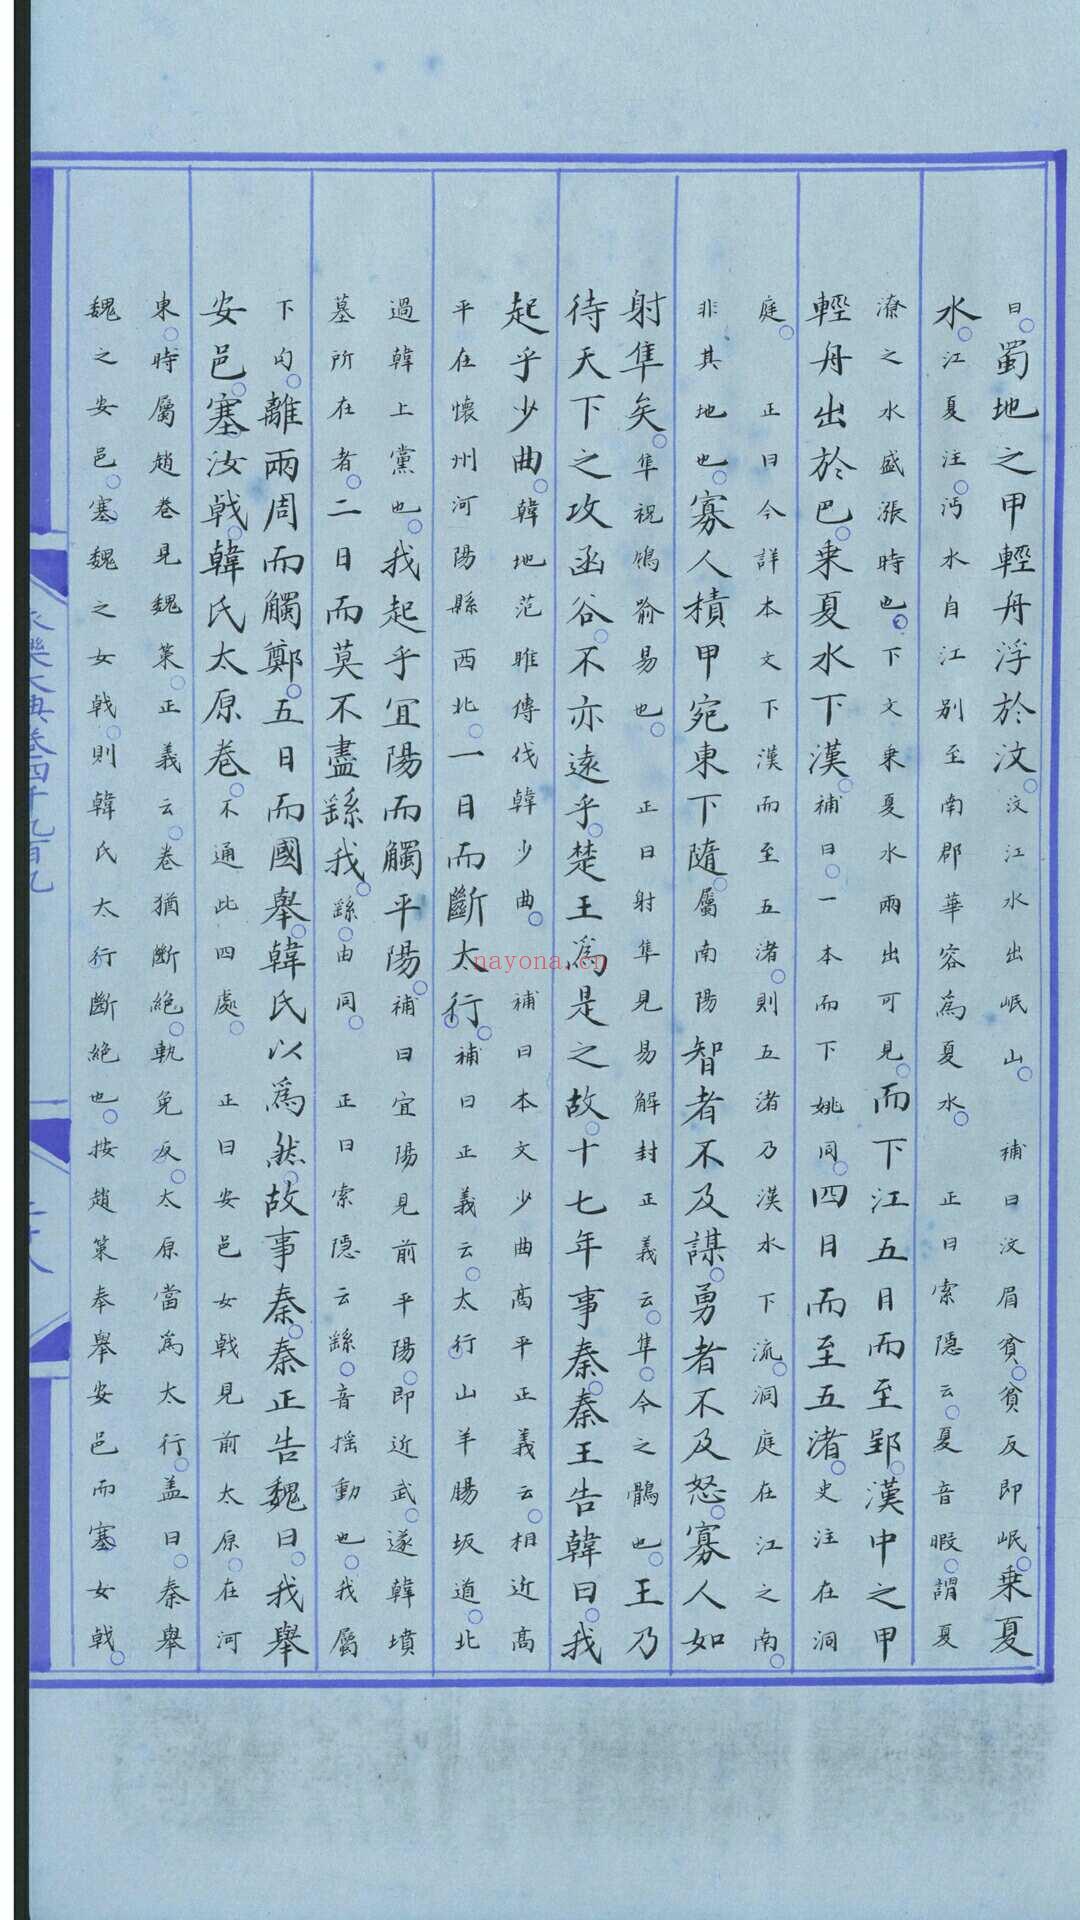 曰蜀地之甲輕舟浮於汶汶江水出岷山補曰汶眉貧貧反即岷乗夏
水江夏注沔水自江别至南郡華容爲夏水正曰索隱云夏音暇謂夏
潦之水盛漲時也下文乗夏水兩出可見而下江五日而至郢漢中之甲
輕舟出於巴乗夏水下漢補曰一本而下姚同四日而至五渚史注在洞
庭正曰今詳本文下漢而至五渚則五渚乃漢水下流洞庭在江之南
非其地也寡人積甲宛東下隨屬南陽智者不及謀勇者不及怒寡人如
射隼矣隼祝鳩喻易也正曰射隼見易解封正義云隼今之鶻也王乃
待天下之攻函谷不亦遠乎楚王爲是之故十七年事秦秦王告韓曰我
起乎少曲韓地范雎傳伐韓少曲補曰本文少曲髙平正義云相近髙
平在懷州河陽縣西北一日而斷太行補曰正義云太行山羊腸坂道北
過韓上黨也我起乎宜陽而觸平陽補曰宜陽見前平陽即近武遂韓墳
墓所在者二日而莫不盡繇我繇由同正曰索隱云繇音揺動也我屬
下句離兩周而觸鄭五日而國舉韓氏以爲然故事秦秦正告魏曰我舉
安邑塞汝戟韓氏太原卷不通此四處正曰安邑女戟見前太原在河
東時屬趙卷見魏策正義云卷猶斷絶軌免反太原當爲太行盖曰秦舉
魏之安邑塞魏之女戟則韓氏太行斷絶也按趙策奉舉安邑而塞女戟
永樂大典卷四千九百九
nayona.cn